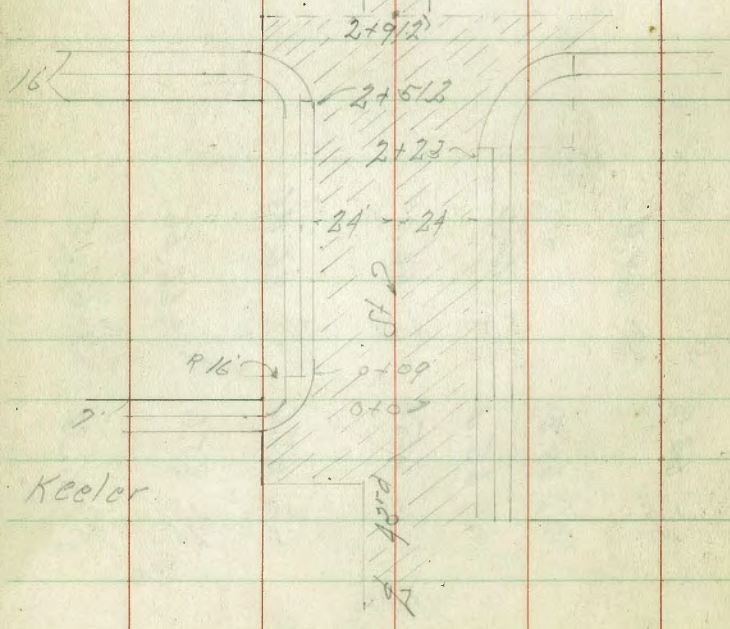 2+912
16
2+512
2+23
24 24
St
R 16'
0+09
0+07
7'
Keeler
43rd